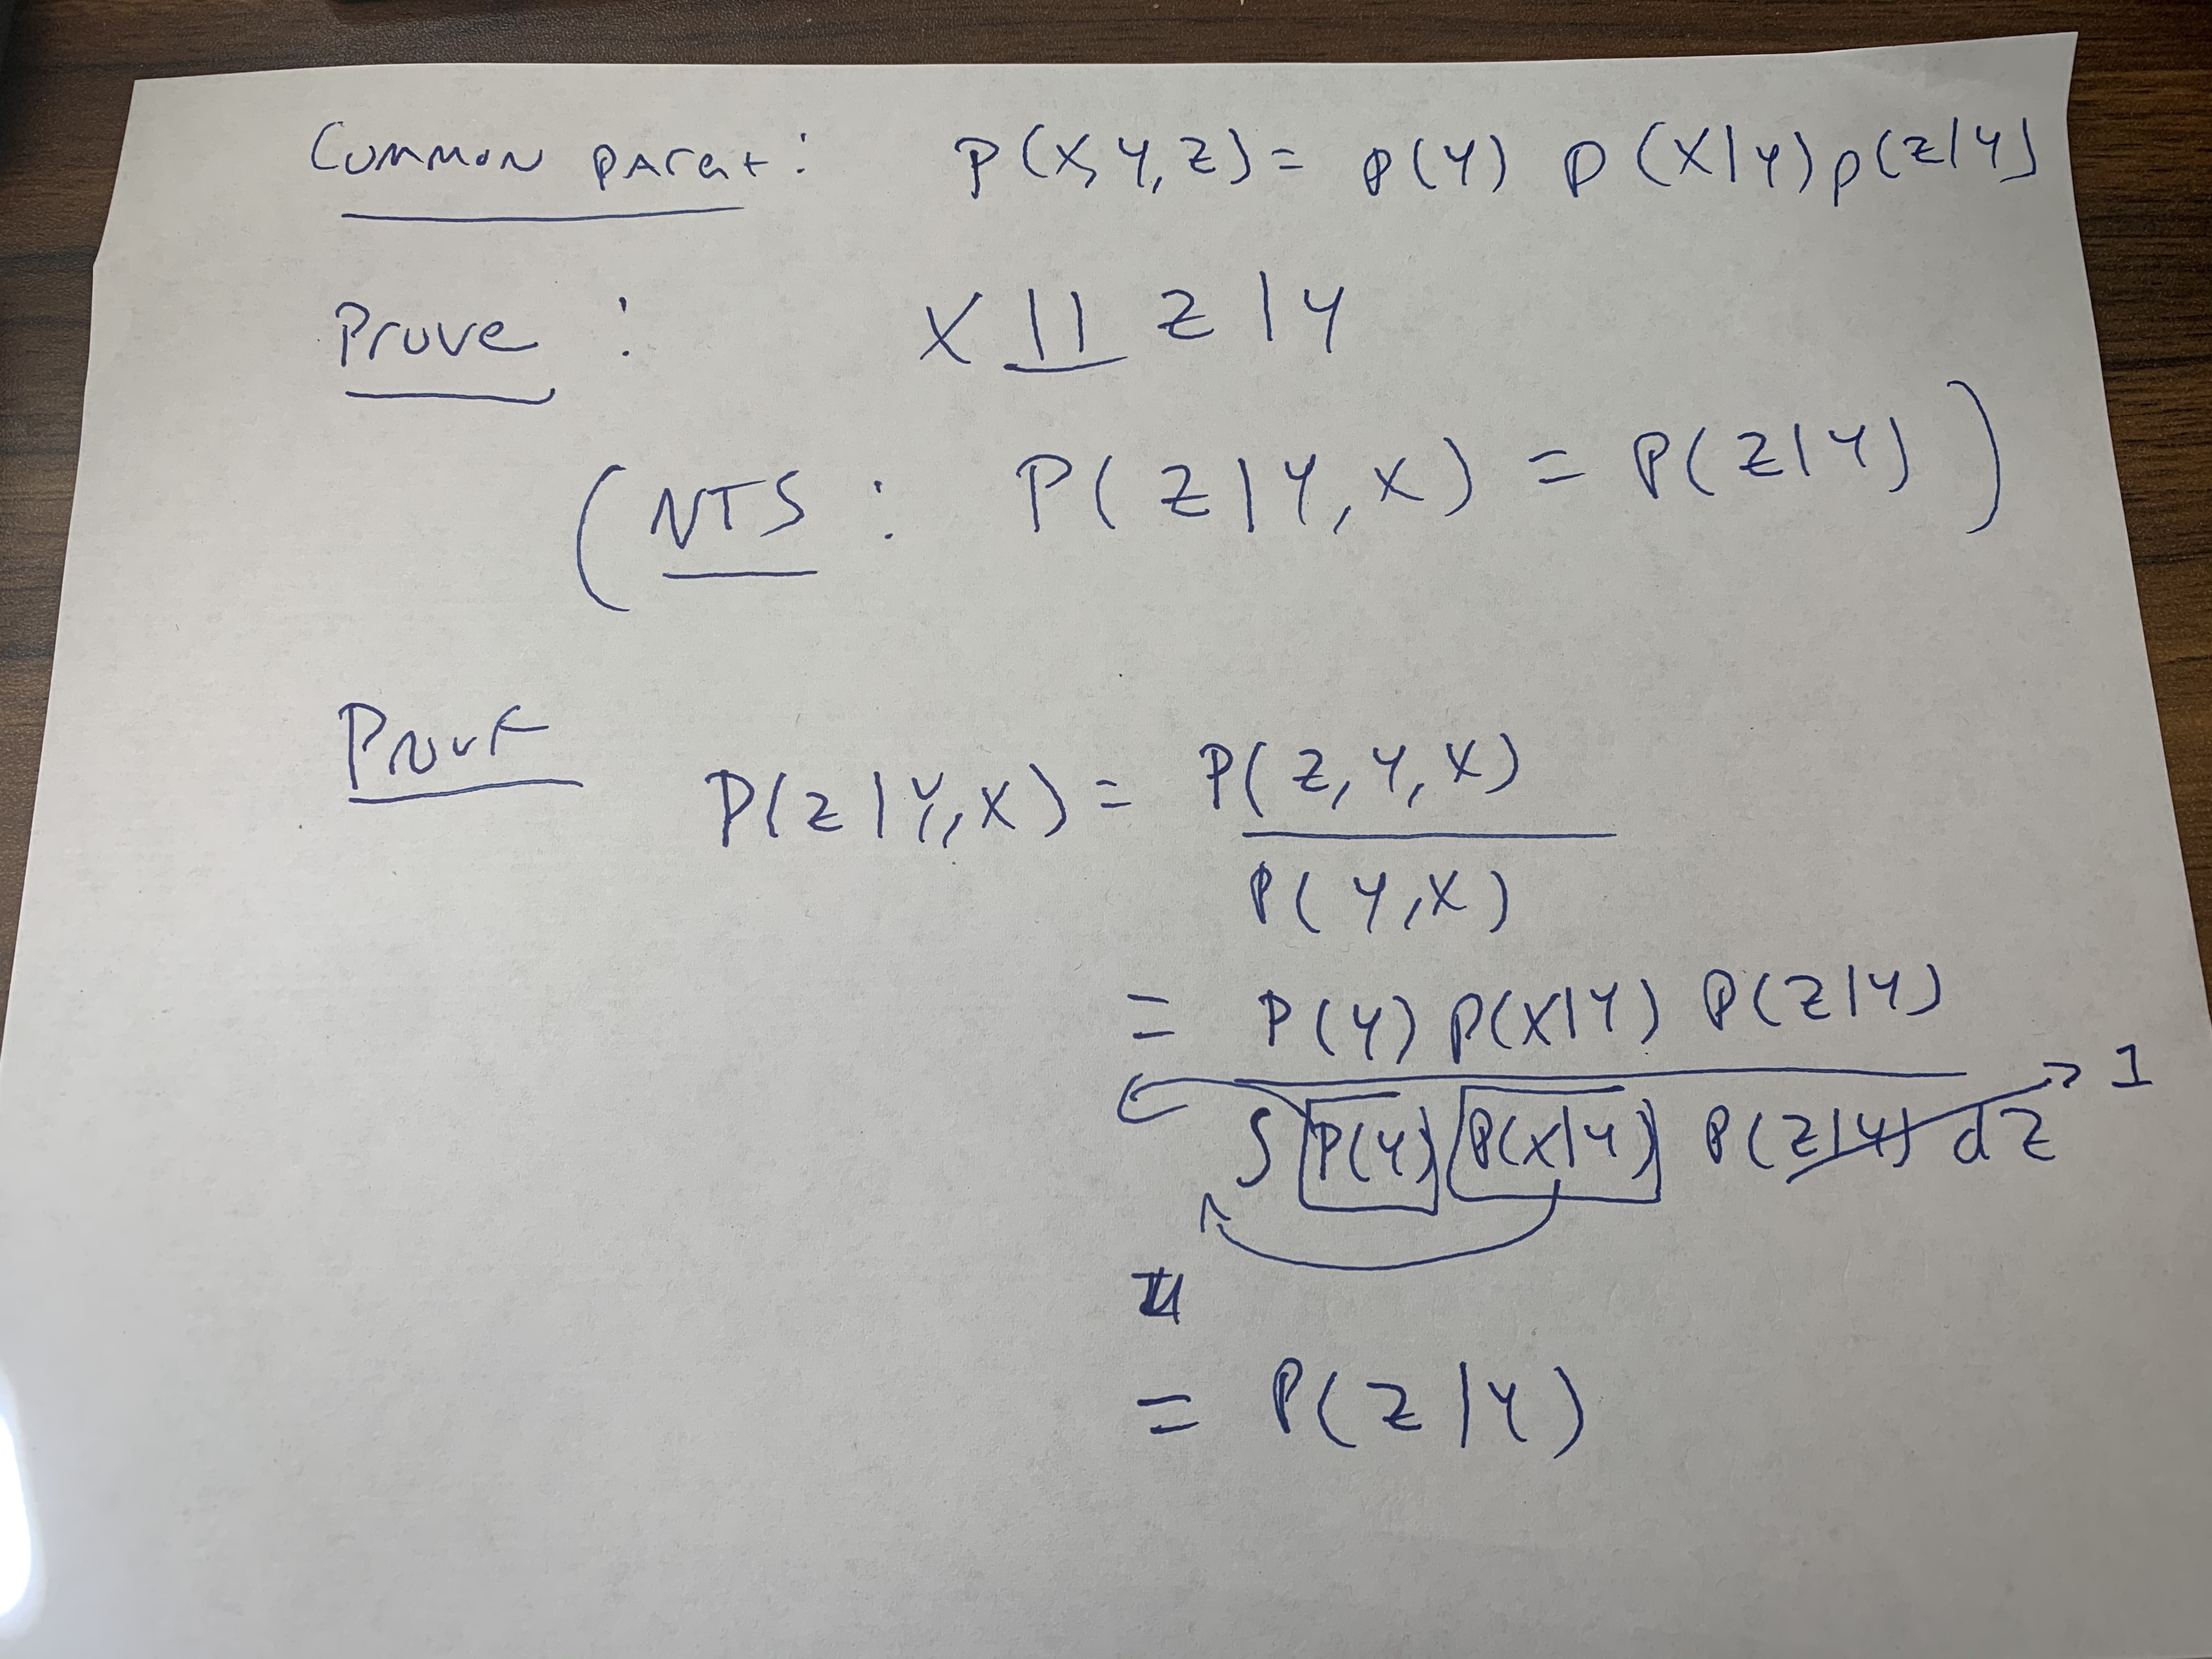 Common parent: P(X,Y,Z) = P(Y) P(X|Y) P(Z|Y)
Prove : X ⫫ Z | Y
(NTS : P(Z|Y,X) = P(Z|Y))
Proof P(Z|Y,X) = P(Z,Y,X)
P(Y,X)
= P(Y) P(X|Y) P(Z|Y)
∫ P(Y) P(X|Y) P(Z|Y) dZ → 1
= P(Z|Y)